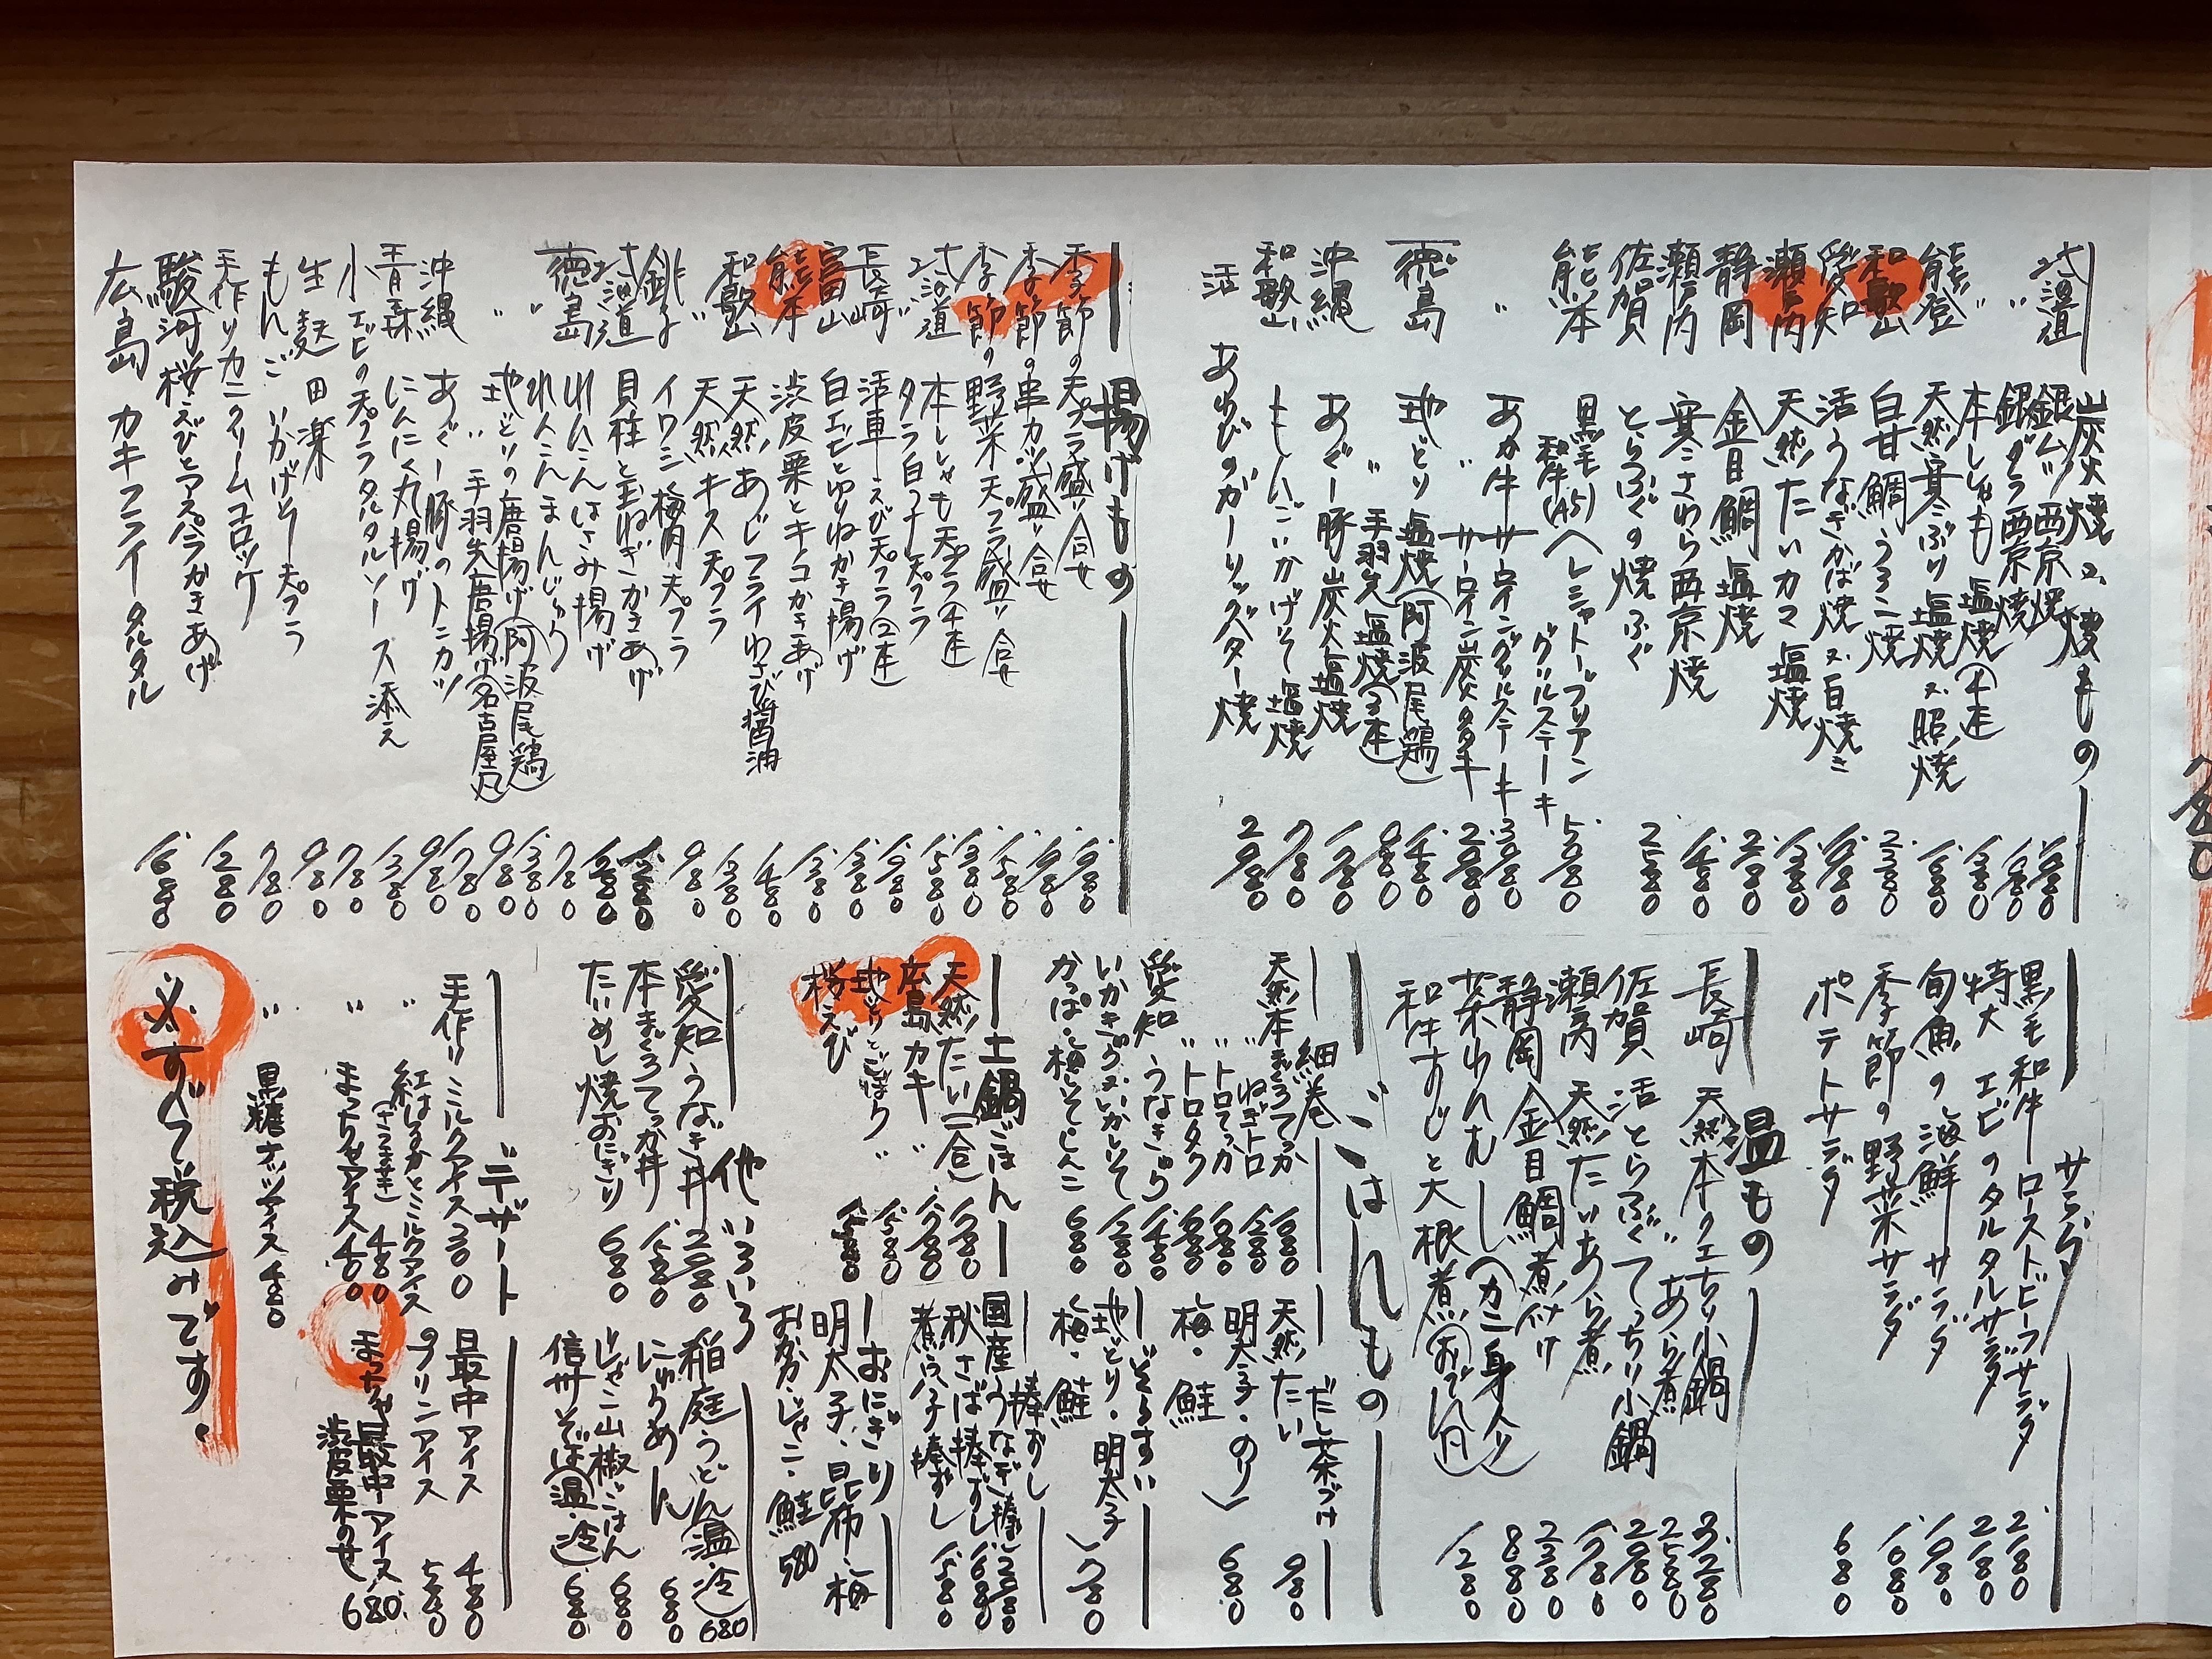 炭火焼き焼もの
北海道 銀ムツ西京焼 1,980
〃 銀ダラ西京焼 1,980
〃 本ししゃも塩焼(4本) 1,380
能登 天然寒ぶり塩焼又照焼 1,880
和歌山 白甘鯛うろこ焼 2,380
愛知 活うなぎかば焼又白焼き
瀬戸内 天然たいカマ塩焼 1,380
静岡 金目鯛塩焼
瀬戸内 寒さわら西京焼 1,480
佐賀 とらふぐの焼ふぐ 2,580
熊本 黒毛和牛(A5)ヘレシャトーブリアングリルステーキ
〃 あか牛サーロイングリルステーキ
〃 サーロイン炭火タタキ
徳島 地どり塩焼(阿波尾鶏) 1,480
〃 手羽先塩焼(3本) 980
沖縄 あぐー豚炭火塩焼
和歌山 もんごいかげそ塩焼 780
活 あわびのガーリックバター焼 2,980
揚げもの
季節の天プラ盛り合せ
季節の串カツ盛り合せ
季節の野菜天プラ盛り合せ 1,580
北海道 本ししゃも天プラ(4本) 1,380
〃 タラ白子天プラ 1,580
長崎 活車えび天プラ(2本)
富山 白エビとゆりねかき揚げ 1,380
熊本 渋皮栗とキノコかきあげ 1,380
和歌山 天然あじフライわさび醤油 1,480
〃 天然キス天プラ 1,380
銚子 イワシ梅肉天プラ 980
北海道 貝柱と玉ねぎかきあげ
徳島 れんこんはさみ揚げ
〃 れんこんまんじゅう 780
〃 地どりの唐揚げ(阿波尾鶏) 1,380
〃 手羽先唐揚げ(名古屋風) 980
沖縄 あぐー豚のトンカツ
青森 にんにく丸揚げ 980
小エビの天プラタルタルソース添え 1,380
生麩田楽 780
もんごいかげそ天プラ 980
手作りカニクリームコロッケ 780
駿河桜えびとアスパラかきあげ 1,280
広島 カキフライタルタル 1,680
サラダ
黒毛和牛ローストビーフサラダ 2,180
特大エビのタルタルサラダ 2,180
旬魚の海鮮サラダ 1,980
季節の野菜サラダ 1,680
ポテトサラダ 680
温もの
長崎 天然本クエちり小鍋 3,280
〃 あら煮 2,580
佐賀 活とらふぐてっちり小鍋 2,980
瀬戸内 天然たいあら煮 1,780
静岡 金目鯛煮付け 2,380
茶わんむし(カニ身入り) 880
和牛すじと大根煮(おでん風) 1,280
ごはんもの
細巻
天然本まぐろてっか
〃 ねぎトロ 1,280
〃 トロてっか
〃 トロタク
愛知 うなきゅう 1,480
いかきゅう又いかしそ 1,280
かっぱ・梅しそ・しんこ 680
だし茶づけ
天然たい 980
明太子・のり
梅・鮭 680
ぞうすい
地どり・明太子
梅・鮭 780
土鍋ごはん
天然たい(一合) 1,780
広島カキ〃 1,780
地どりとごぼう〃 1,580
桜えび〃
棒ずし
国産うなぎ棒ずし
秋さば棒ずし 1,680
煮穴子棒ずし 1,580
おにぎり
明太子・昆布・梅
おかか・じゃこ・鮭 580
他いろいろ
愛知うなぎ丼
本まぐろてっか丼 1,580
たいめし焼おにぎり 680
稲庭うどん(温・冷) 680
にゅうめん 680
じゃこ山椒ごはん 680
信州そば(温・冷) 680
デザート
手作りミルクアイス 300
〃 紅はるかとミルクアイス(さつまいも) 480
〃 まっちゃアイス 400
〃 黒糖ナッツアイス 480
最中アイス 480
プリンアイス 580
まっちゃ最中アイス渋皮栗のせ 680
※すべて税込みです。